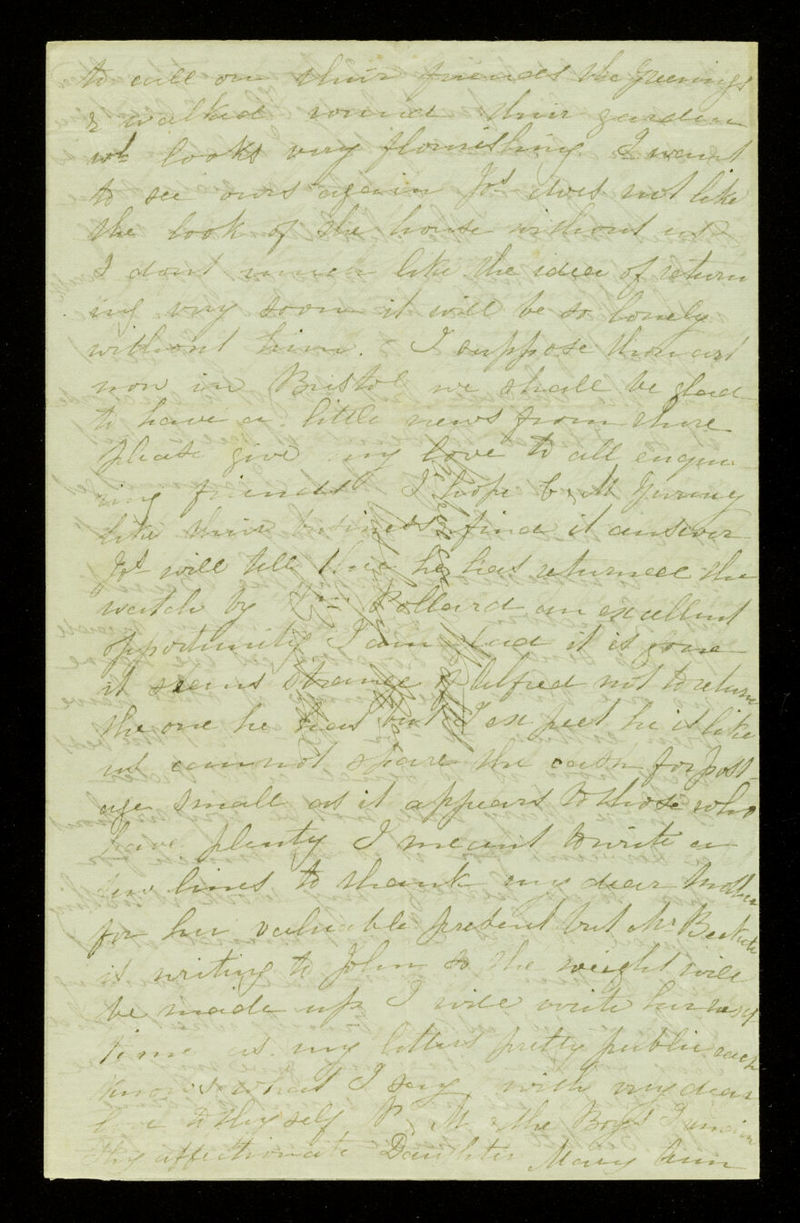 to call on their friends the Greenings
& walked round their garden
wh looks very flourishing. I want
to see ours again Jos does not like
the look of the house without us &
I dont much like the idea of return
ing very soon it will be so lonely
without him. I suppose thou art
now in Bristol we shall be glad
to have a little news from there
please give my love to all enqui
ring friends I hope & M Gurney
like their business & find it answer
Jos will tell thee he has returned the
watch by Pollard an excellent
opportunity I am glad it is gone
it seems strange of Alfred not to return
the one he has but I expect he is like
us cannot spare the cash for post-
age small as it appears to those who
have plenty I meant to write a
few lines to thank my dear Mother
for her valuable present but Mr
is writing to John so the weight will
be made up I will write her next
time as my letters pretty public each
knows what I say with very dear
love to thyself P. M & the Boys I remain
Thy affectionate Daughter Mary Ann